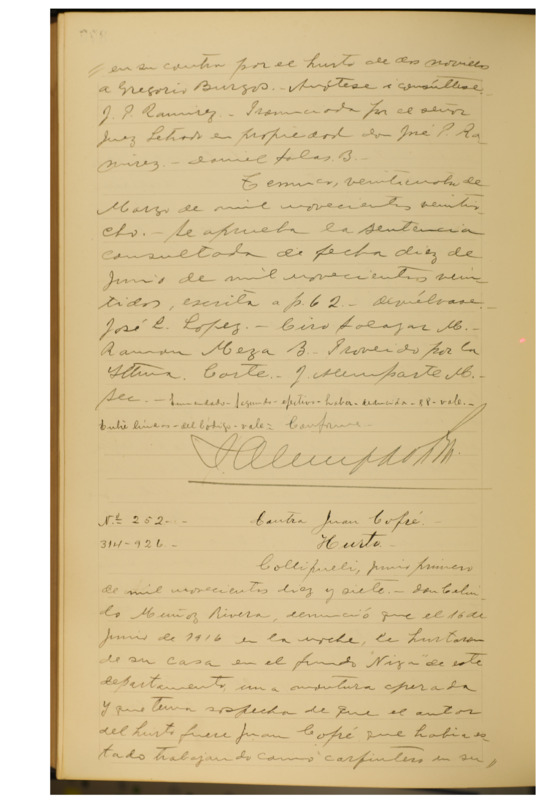 en su contra por el hurto de dos novillos
a Gregorio Burgos.- Anótese i consúltese.
J. P. Ramirez.- Pronunciada por el señor
Juez Letrado en propiedad don José P. Ra
mirez.- Daniel Salas B.-
Temuco, veintiocho de
Marzo de mil novecientos veintio
cho.- Se aprueba la sentencia
consultada de fecha diez de
Junio de mil novecientos vein
tidos, escrita a p. 62.- devuélvase.-
José L. Lopez.- Ciro Salazar M.-
Ramon Meza B.- Proveido por la
Iltma. Corte.- J. Alemparte M.-
Sec.- Enmendado- segundo- efectivo- haber- vale-
Entre lineas- del Codigo- vale- Conforme
Nº 252.-
Contra Juan Cofré.-
314-926.-
Hurto.-
Collipulli, junio primero
de mil novecientos diez y siete.-
do Muñoz Rivera, denunció que el 16 de
Junio de 1916 en la noche, le hurtaron
de su casa en el fundo "Niza" de este
departamento, una montura aperada
y que tenia sospecha de que el autor
del hurto fuere Juan Cofré que habia es
tado trabajando como carpintero en su